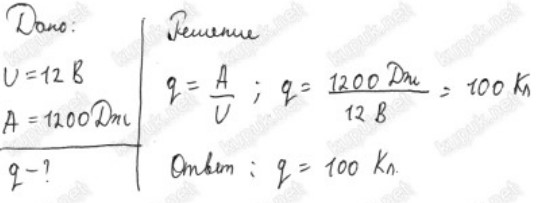 Дано:
U = 12 В
A = 1200 Дж
q - ?
Решение
q = A/U ; q = 1200 Дж / 12 В = 100 Кл
Ответ : q = 100 Кл.